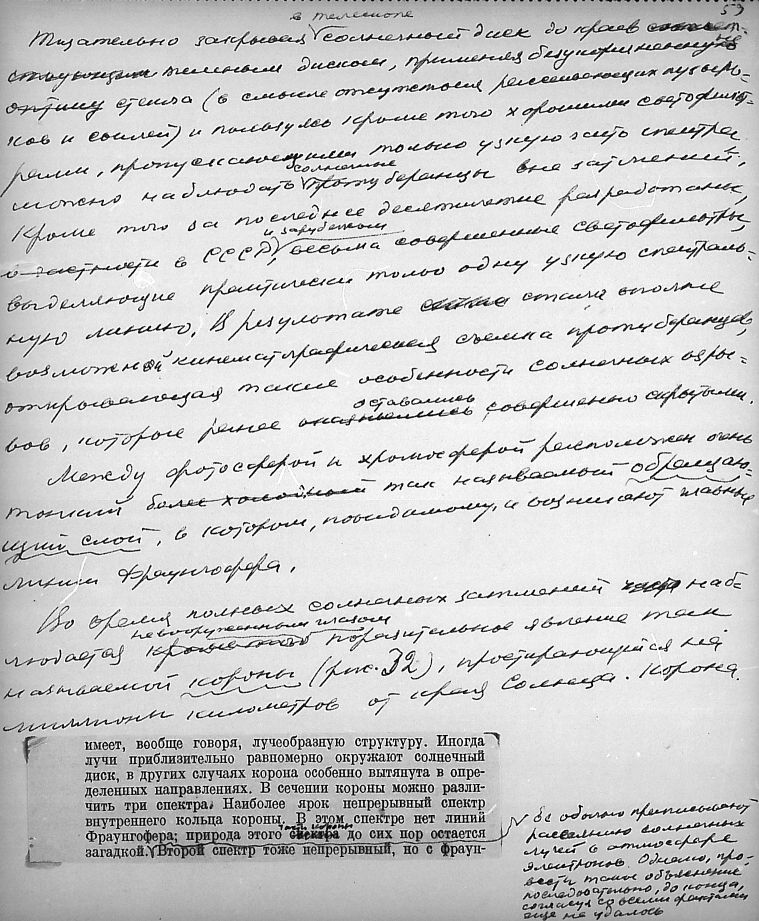 57
в телескопе
Тщательно закрывая солнечный диск до краев
темным диском, применяя безукоризненную
оптику стекла (в смысле отсутствия рассеивающих пузырь-
ков и свилей) и пользуясь кроме того хорошими светофильт-
рами, пропускающими только узкую часть спектра
солнечные
можно наблюдать протуберанцы вне затмений.
Кроме того за последнее десятилетие разработаны,
и зарубежом
в частности в СССР, весьма совершенные светофильтры,
выделяющие практически только одну узкую спектраль-
ную линию. В результате стала вполне
возможной кинематографическая съемка протуберанцев,
открывающая такие особенности солнечных взры-
оставались
вов, которые ранее оказывались совершенно скрытыми.
Между фотосферой и хромосферой расположен очень
тонкий более холодный так называемый обращаю-
щий слой, в котором, повидимому, и возникают главные
линии Фраунгофера.
Во время полных солнечных затмений наб-
невооруженным глазом
людается поразительное явление так
называемой короны (рис. 32), простирающейся на
миллионы километров от края Солнца. Корона
имеет, вообще говоря, лучеобразную структуру. Иногда
лучи приблизительно равномерно окружают солнечный
диск, в других случаях корона особенно вытянута в опре-
деленных направлениях. В сечении короны можно разли-
чить три спектра. Наиболее ярок непрерывный спектр
внутреннего кольца короны. В этом спектре нет линий
части короны
Фраунгофера; природа этого спектра до сих пор остается
загадкой. Второй спектр тоже непрерывный, но с фраун-
Ее обычно приписывают
рассеянию солнечных
лучей в атмосфере
электронов. Однако, про-
вести такое объяснение
последовательно, до конца,
согласуя со всеми фактами
еще не удалось